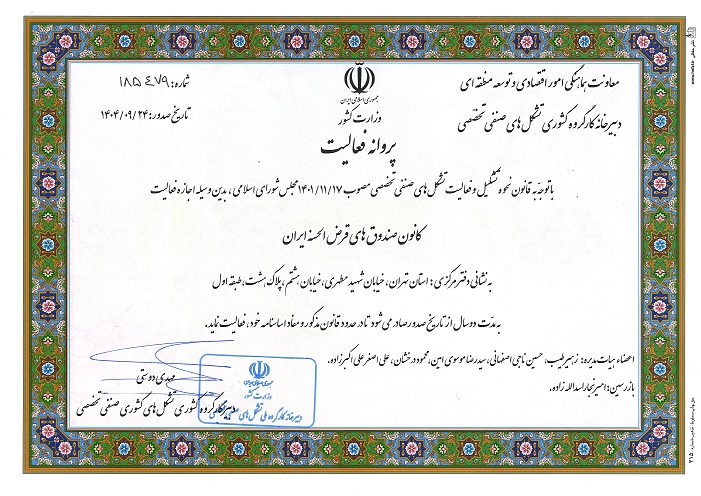 معاونت هماهنگی امور اقتصادی و توسعه منطقه ای
دبیرخانه کارگروه کشوری تشکل های صنفی تخصصی
جمهوری اسلامی ایران
وزارت کشور
شماره: ۱۸۵۴۷۹
تاریخ صدور: ۱۴۰۴/۰۹/۲۴
پروانه فعالیت
با توجه به قانون نحوه تشکیل و فعالیت تشکل های صنفی تخصصی مصوب ۱۴۰۱/۱۱/۱۷ مجلس شورای اسلامی، بدین وسیله اجازه فعالیت
کانون صندوق های قرض الحسنه ایران
به نشانی دفتر مرکزی: استان تهران، خیابان شهید مطهری، خیابان هشتم، پلاک هشت، طبقه اول
به مدت دو سال از تاریخ صدور صادر می شود تا در حدود قانون مذکور و مفاد اساسنامه خود، فعالیت نماید.
اعضاء هیات مدیره: زهیر طیب، حسین ناجی اصفهانی، سید رضا موسوی امین، محمود درخشان، علی اصغر علی اکبرزاده.
بازرسین: امیر نجار اسدالله زاده.
مهدی دوستی
دبیر کارگروه کشوری تشکل های کشوری صنفی تخصصی
جمهوری اسلامی ایران
وزارت کشور
دبیرخانه کارگروه ملی تشکل های